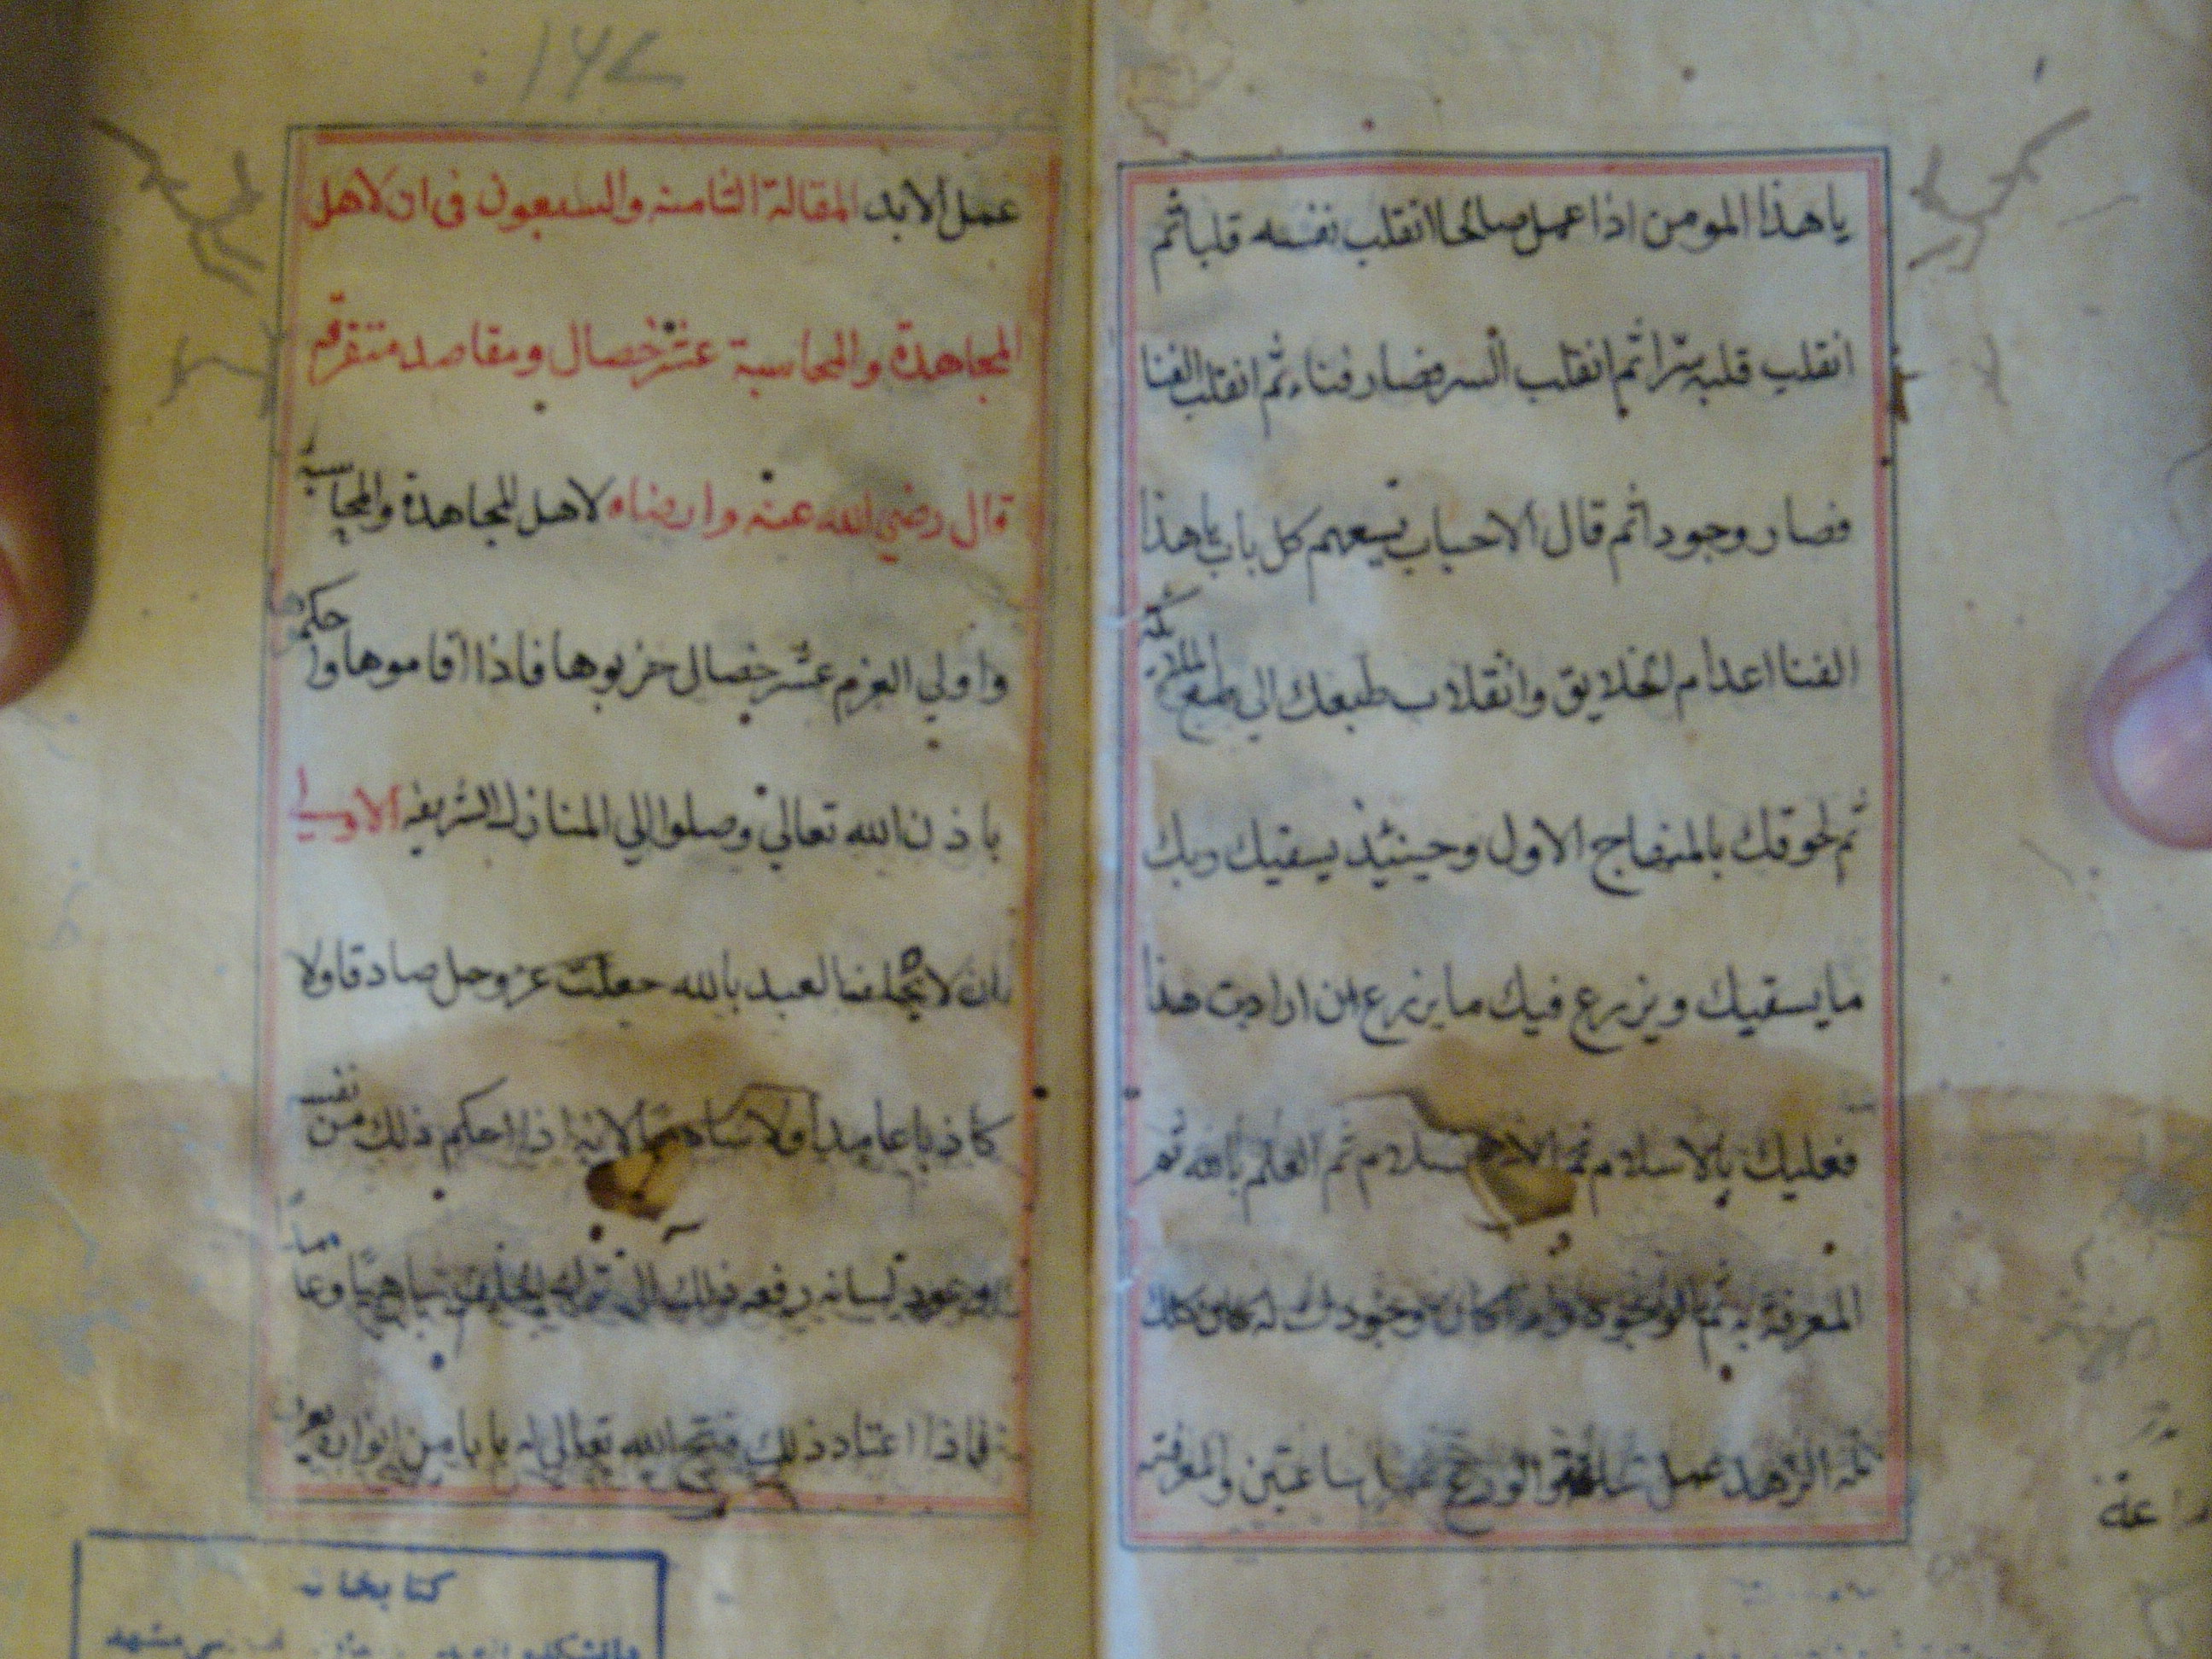 يا هذا المومن اذا عمل صالحا انقلب نفسه قلبا ثم
انقلب قلبه سرا ثم انقلب السر فصار فناء ثم انقلب الفنا
فصار وجودا ثم قال الاحباب يسعهم كل باب يا هذا
الفنا اعدام الخلايق وانقلاب طبعك الى طبع الملايكة
ثم لحوقك بالمنهاج الاول وحينئذ يسقيك ربك
ما يسقيك ويزرع فيك ما يزرع ان اردت هذا
فعليك بالاسلام ثم الاستسلام ثم العلم بالله ثم
المعرفة به ثم الوجود واذا كان وجودك له كان كلك
له الزهد عمل ساعة والورع عمل ساعتين والمعرفة
عمل الابد المقالة الثامنه والسبعون فى ان لاهل
المجاهدة والمحاسبة عشر خصال ومقاصد متفرقه
قال رضي الله عنه وارضاه لاهل المجاهدة والمحاسبة
واولي العزم عشر خصال جربوها فاذا اقاموها واحكموها
باذن الله تعالي وصلوا الي المنازل الشريفه الاولى
ان لا يحلف العبد بالله عز وجل صادقا ولا
كاذبا عامدا ولا ساهيا لانه اذا احكم ذلك من نفسه
وعود لسانه رفعه ذلك الى ترك الحلف ساهيا وعامدا
فاذا اعتاد ذلك فتح الله تعالى له بابا من انواره
١٤٧
كتابخانه
مشهد